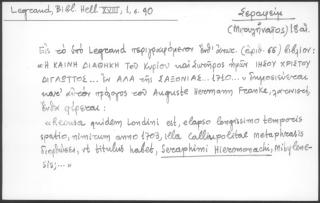 Legrand, Bibl. Hell XVIII, 1, σ. 90
Σεραφείμ
(Μυτιληναῖος) 18 αἰ.
Εἰς τὸ ὑπὸ Legrand περιγραφόμενον ὑπ' ἀριθ. (ἀριθ. 66) βιβλίον:
« Η ΚΑΙΝΗ ΔΙΑΘΗΚΗ ΤΟΥ Κυρίου καὶ Σωτῆρος ἡμῶν ΙΗΣΟΥ ΧΡΙΣΤΟΥ
ΔΙΓΛΩΤΤΟΣ... ἐν ΑΛΑ τῆς ΣΑΞΟΝΙΑΣ... 1710... » δημοσιεύεται
πρόλογος τοῦ Auguste Hermann Franke, λατινιστί,
ἔνθα φέρεται:
« Recusa quidem Londini est, elapso longissimo temporis
spatio, nimirum anno 1703, illa Calliupolitae metaphrasis
διορθώσει, ut titulus habet, Seraphimi Hieromonachi, Mitylene-
sis;... »